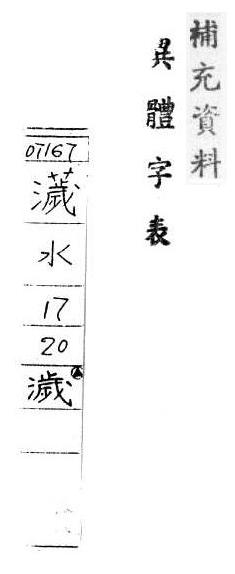 補充資料
異體字表
07167
水
17
20
濊